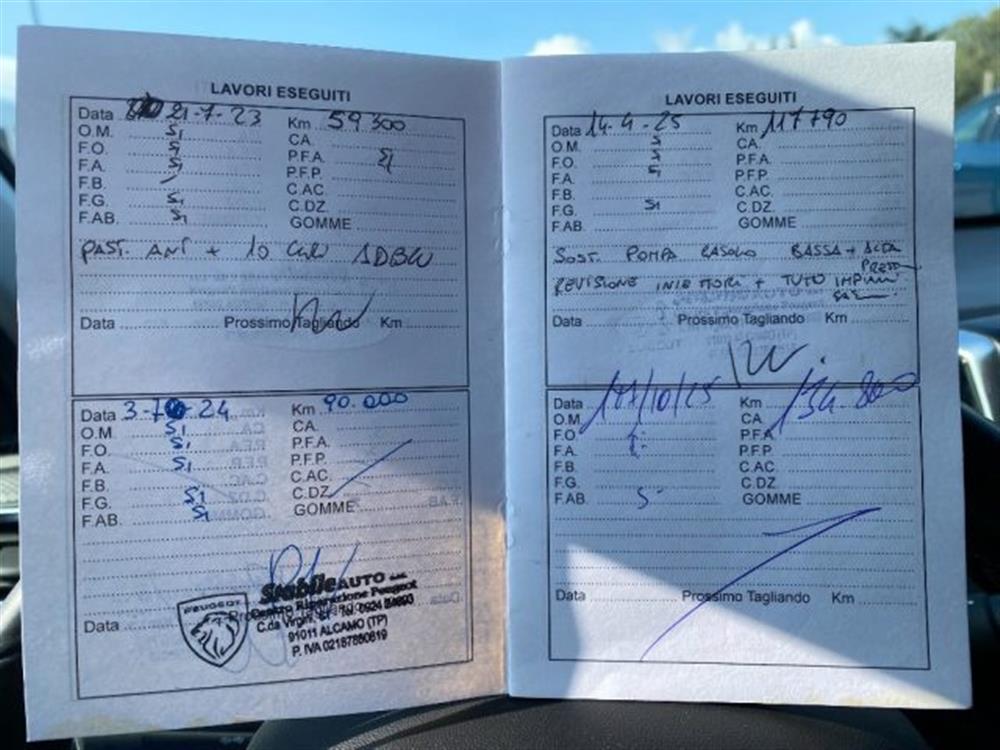 LAVORI ESEGUITI
Data 21-7-23 Km 59300
O.M. Si CA.
F.O. Si P.F.A. Si
F.A. Si P.F.P.
F.B. C.AC.
F.G. Si C.DZ.
F.AB. Si GOMME
PAST. ANT + 10 ADBLU
Data Prossimo Tagliando Km
Data 3-7-24 Km 90.000
O.M. Si CA.
F.O. Si P.F.A.
F.A. Si P.F.P.
F.B. C.AC.
F.G. Si C.DZ.
F.AB. Si GOMME
StabileAUTO
Centro Riparazione Peugeot
C.da Virgini, Tel. 0924
91011 ALCAMO (TP)
P. IVA 02187880819
PEUGEOT
Data Prossimo Tagliando
LAVORI ESEGUITI
Data 14-4-25 Km 117790
O.M. Si CA.
F.O. Si P.F.A.
F.A. Si P.F.P.
F.B. C.AC.
F.G. Si C.DZ.
F.AB. GOMME
SOST. POMPA GASOLIO BASSA + ALTA
PRESS.
REVISIONE INIETTORI + TUTO
Data Prossimo Tagliando Km
Data 17/10/25 Km 134.800
O.M. CA.
F.O. P.F.A.
F.A. P.F.P.
F.B. C.AC.
F.G. C.DZ.
F.AB. GOMME
Data Prossimo Tagliando Km